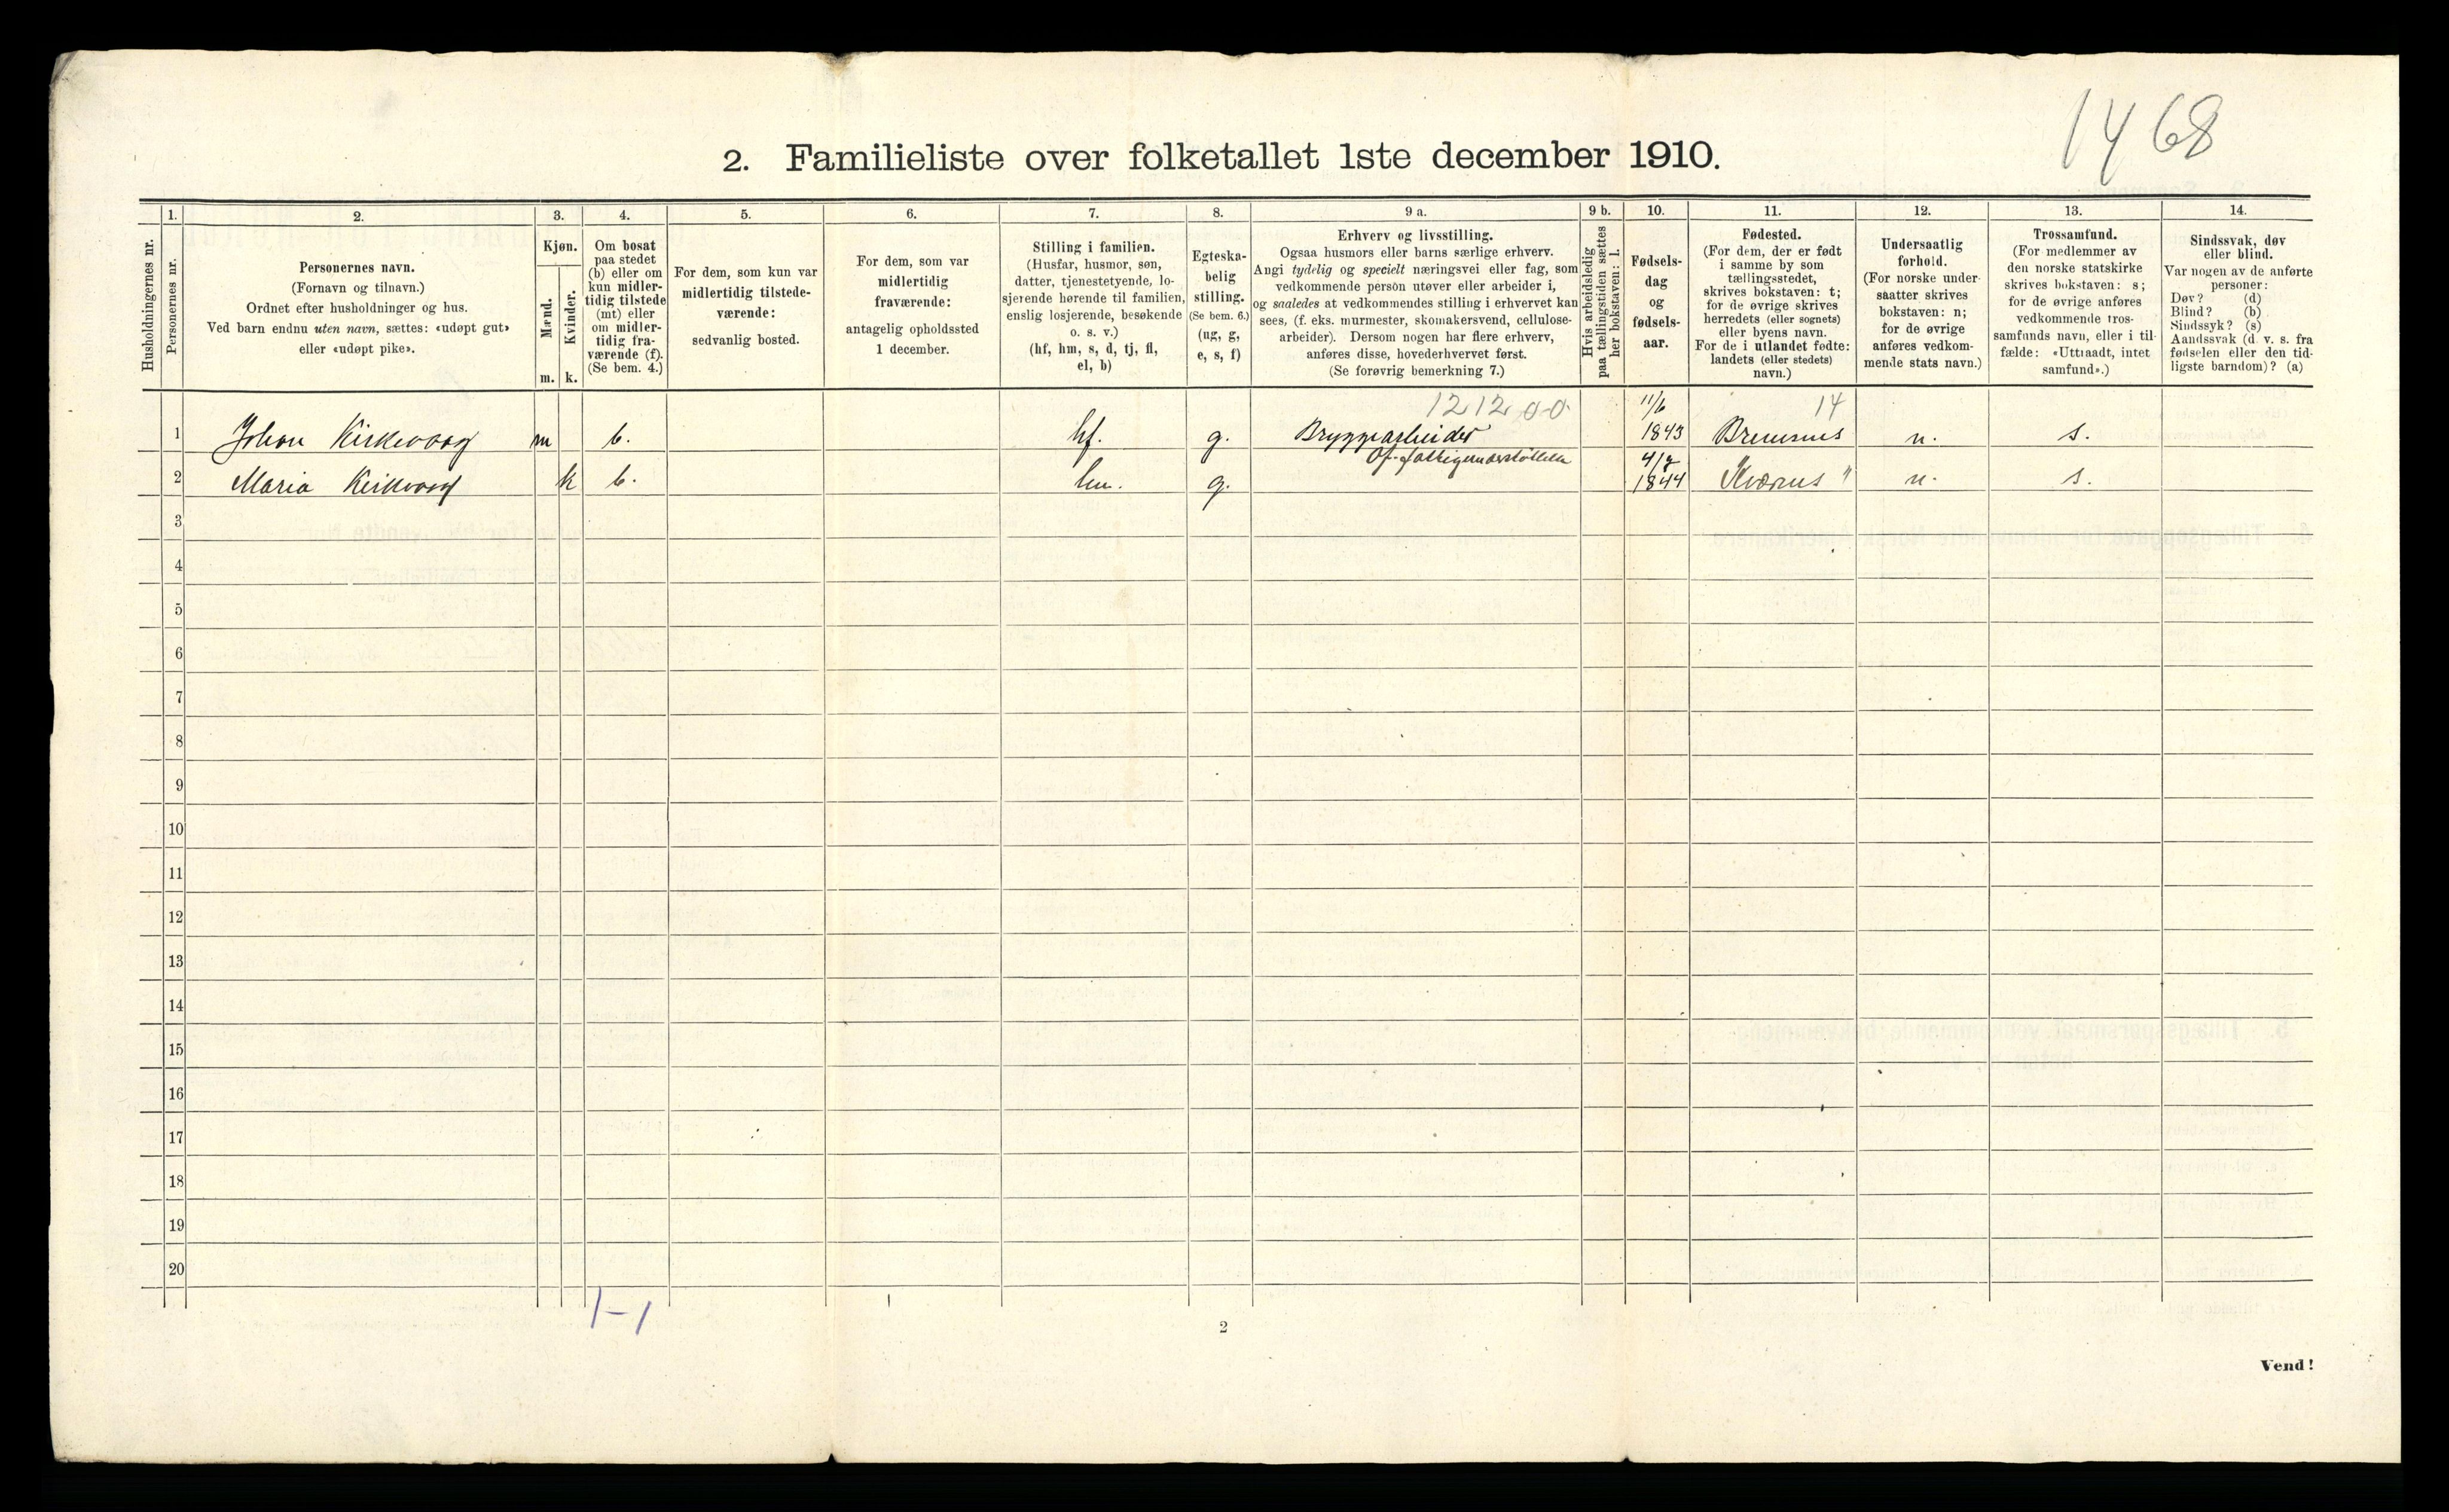 1468
2. Familieliste over folketallet 1ste december 1910.
Husholdningernes nr.
1.
Personernes nr.
2.
Personernes navn.
(Fornavn og tilnavn.)
Ordnet efter husholdninger og hus.
Ved barn endnu uten navn, sættes: «udøpt gut»
eller «udøpt pike».
3.
Kjøn.
Mænd.
m.
Kvinder.
k.
4.
Om bosat
paa stedet
(b) eller om
kun midler-
tidig tilstede
(mt) eller
om midler-
tidig fra-
værende (f).
(Se bem. 4.)
5.
For dem, som kun var
midlertidig tilstede-
værende:
sedvanlig bosted.
6.
For dem, som var
midlertidig
fraværende:
antagelig opholdssted
1 december.
7.
Stilling i familien.
(Husfar, husmor, søn,
datter, tjenestetyende, lo-
sjerende hørende til familien,
enslig losjerende, besøkende
o. s. v.)
(hf, hm, s, d, tj, fl,
el, b)
8.
Egteska-
belig
stilling.
(Se bem. 6.)
(ug, g,
e, s, f)
9 a.
Erhverv og livsstilling.
Ogsaa husmors eller barns særlige erhverv.
Angi tydelig og specielt næringsvei eller fag, som
vedkommende person utøver eller arbeider i,
og saaledes at vedkommendes stilling i erhvervet kan
sees, (f. eks. murmester, skomakersvend, cellulose-
arbeider). Dersom nogen har flere erhverv,
anføres disse, hovederhvervet først.
(Se forøvrig bemerkning 7.)
9 b.
Hvis arbeidsledig
paa tællingstiden sættes
her bokstaven: l.
10.
Fødsels-
dag
og
fødsels-
aar.
11.
Fødested.
(For dem, der er født
i samme by som
tællingsstedet,
skrives bokstaven: t;
for de øvrige skrives
herredets (eller sognets)
eller byens navn.
For de i utlandet fødte:
landets (eller stedets)
navn.)
12.
Undersaatlig
forhold.
(For norske under-
saatter skrives
bokstaven: n;
for de øvrige
anføres vedkom-
mende stats navn.)
13.
Trossamfund.
(For medlemmer av
den norske statskirke
skrives bokstaven: s;
for de øvrige anføres
vedkommende tros-
samfunds navn, eller i til-
fælde: «Uttraadt, intet
samfund».)
14.
Sindssvak, døv
eller blind.
Var nogen av de anførte
personer:
Døv? (d)
Blind? (b)
Sindssyk? (s)
Aandssvak (d. v. s. fra
fødselen eller den tid-
ligste barndom)? (a)
1212 00 11/6 14
1 Johan Kirkevaag m b. hf. g. Bryggearbeider 1843 Bremsnes n. s.
Of. fattigunderstøttelse 4/7
2 Maria Kirkevaag k b. hm. g. 1844 Kværnes " n. s.
3
4
5
6
7
8
9
10
11
12
13
14
15
16
17
18
19
20
1-1
2
Vend!